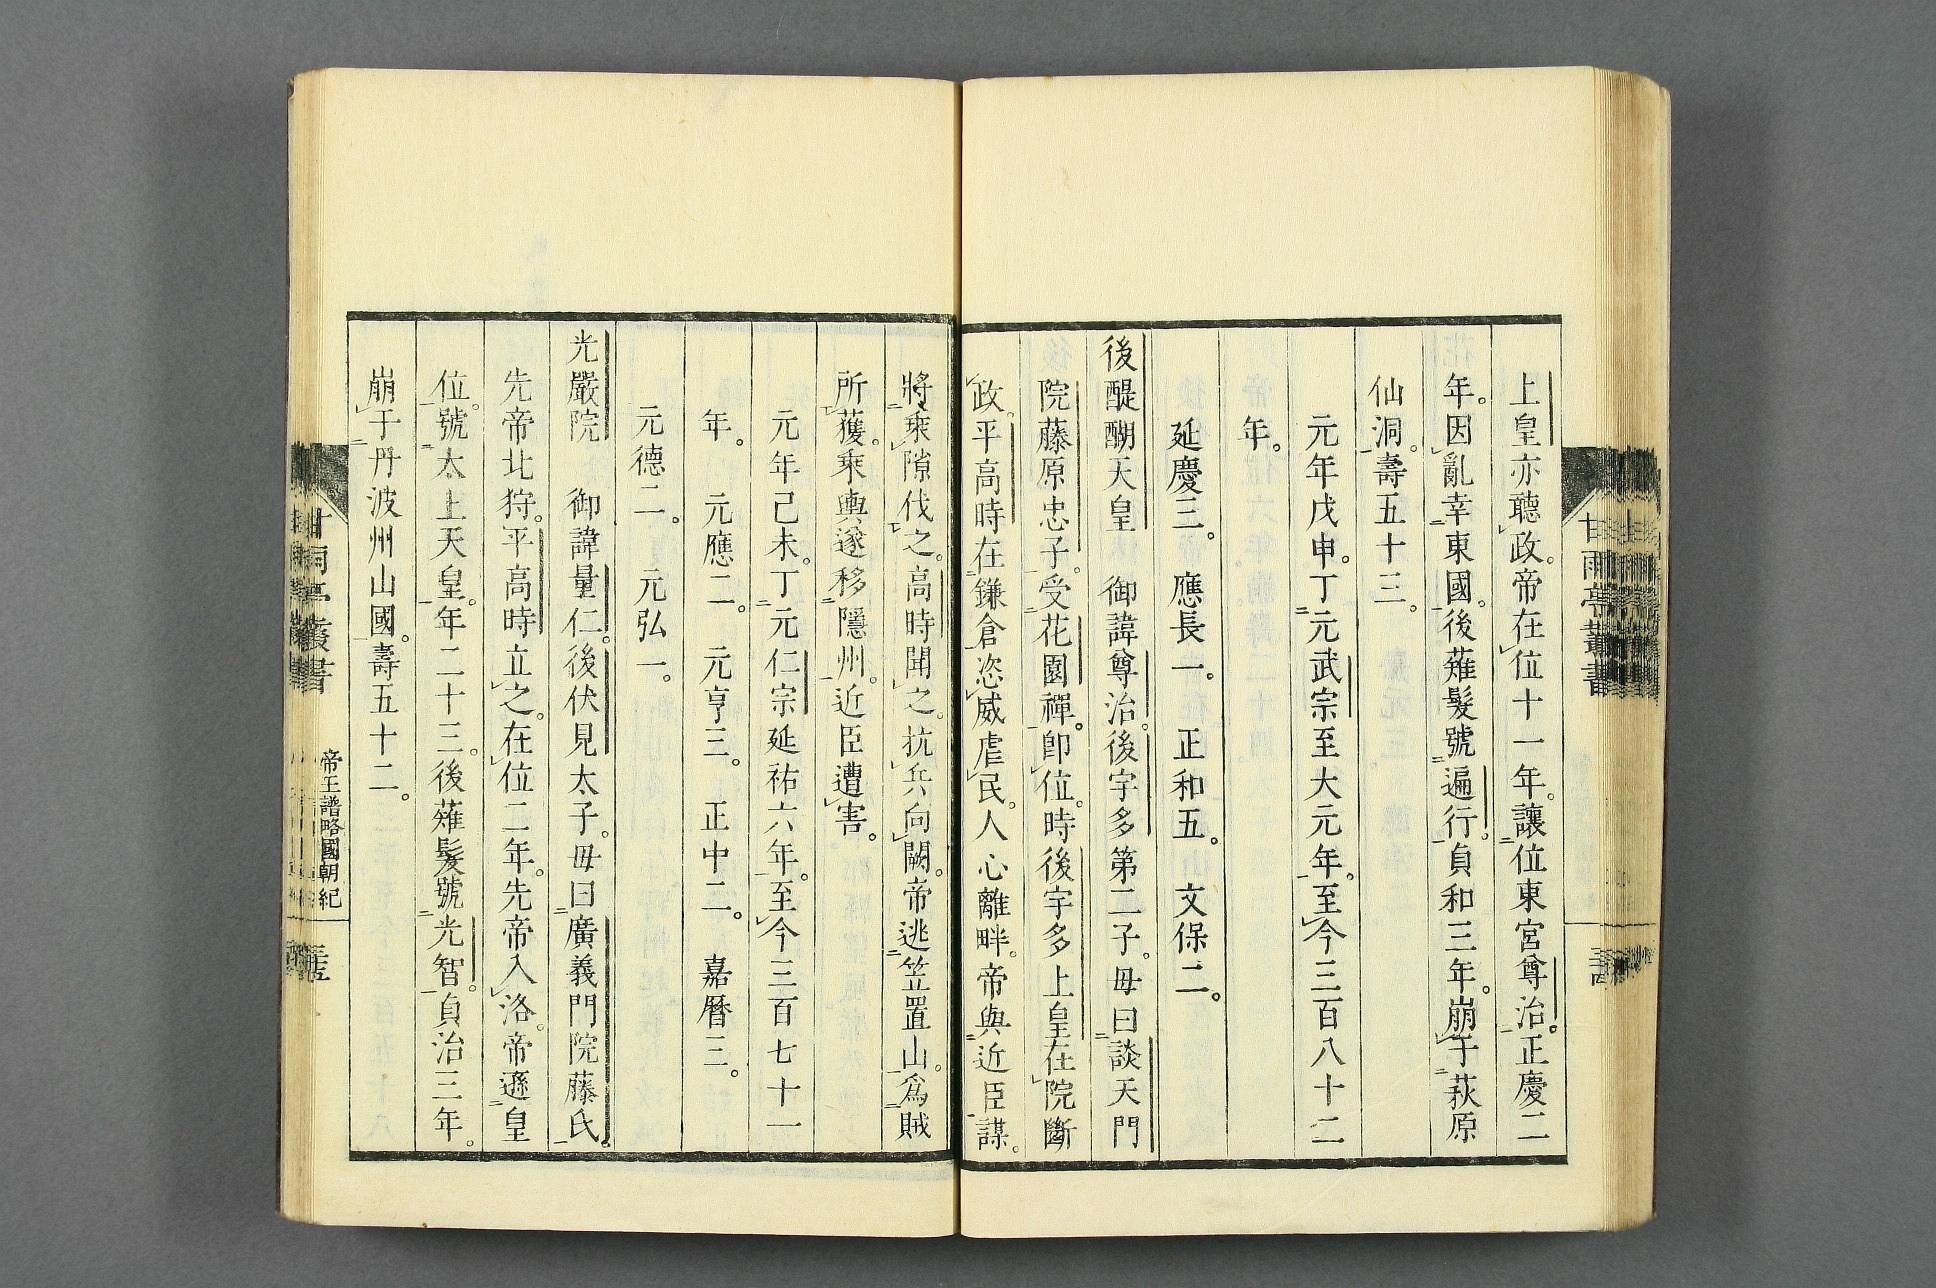 上皇亦聽政。帝在位十一年。讓位東宮尊治。正慶二
年。因亂幸東國。後薙髮號遍行。貞和三年。崩于萩原
仙洞。壽五十三。
元年戊申。丁元武宗至大元年。至今三百八十二
年。
延慶三。 應長一。 正和五。 文保二。
後醍醐天皇 御諱尊治。後宇多第二子。母曰談天門
院藤原忠子。受花園禪。卽位。時後宇多上皇在院斷
政。平高時在鎌倉恣威虐民。人心離畔。帝與近臣謀。
將乘隙伐之。高時聞之。抗兵向闕。帝逃笠置山。爲賊
所獲。乘輿遂移隱州。近臣遭害。
元年己未。丁元仁宗延祐六年。至今三百七十一
年。 元應二。 元亨三。 正中二。 嘉曆三。
元德二。 元弘一。
光嚴院 御諱量仁。後伏見太子。母曰廣義門院藤氏。
先帝北狩。平高時立之。在位二年。先帝入洛。帝遜皇
位。號太上天皇。年二十三。後薙髮號光智。貞治三年。
崩于丹波州山國。壽五十二。
甘雨亭叢書
帝王譜略國朝紀
甘雨亭叢書